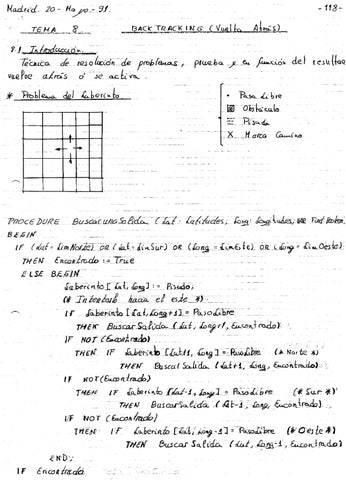 Madrid. 20- Mayo-91. -118-
TEMA 8 BACKTRACKING (Vuelta Atrás)
8.1 Introducción
Técnica de resolución de problemas, prueba y en función del resultado
vuelve atrás ó se activa.
* Problema del Laberinto
• Paso Libre
Obstáculo
Pisada
X Marca Camino
PROCEDURE BuscarunaSalida (Lat: Latitudes; Long: Longitudes; VAR
BEGIN
IF (Lat = LimNorte) OR (Lat = LimSur) OR (Long = LimEste) OR (Long = LimOeste)
THEN Encontrado := True
ELSE BEGIN
Laberinto [Lat, Long] := Pisado;
(* Intentalo hacia el este *)
IF Laberinto [Lat, Long+1] = PasoLibre
THEN BuscarSalida (Lat, Long+1, Encontrado)
IF NOT (Encontrado)
THEN IF Laberinto [Lat+1, Long] = PasoLibre (* Norte *)
THEN BuscarSalida (Lat+1, Long, Encontrado)
IF NOT (Encontrado)
THEN IF Laberinto [Lat-1, Long] = PasoLibre (* Sur *)
THEN BuscarSalida (Lat-1, Long, Encontrado)
IF NOT (Encontrado)
THEN IF Laberinto [Lat, Long-1] = PasoLibre (* Oeste *)
THEN BuscarSalida (Lat, Long-1, Encontrado)
END;
IF Encontrado